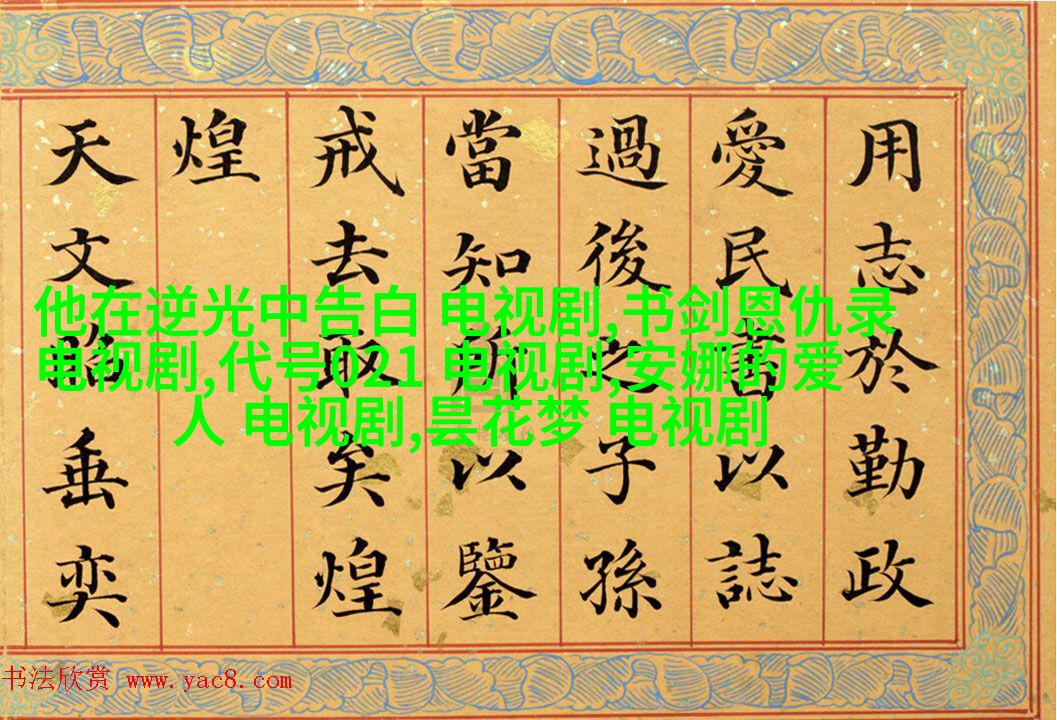 用志於勤政
愛民以誌
過後之子孫
當知所以鑒
戒去取矣煌
煌
天文垂奕
他在逆光中告白 电视剧,书剑恩仇录
电视剧,代号021 电视剧,安娜的爱
人 电视剧,昙花梦 电视剧
书法欣赏 www.yac8.com